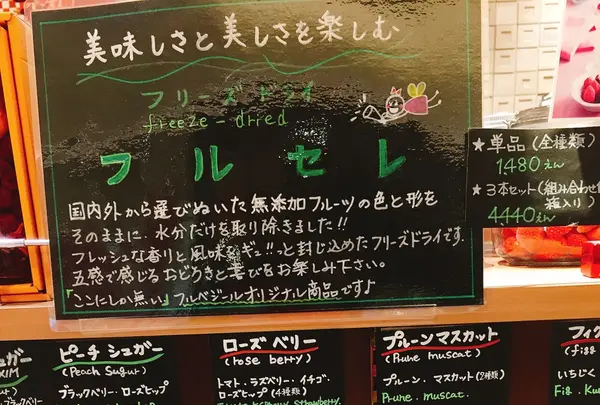 美味しさと美しさを楽しむ
フリーズドライ
freeze-dried
フルセレ
国内外から選びぬいた無添加フルーツの色と形を
そのままに、水分だけを取り除きました!!
フレッシュな香りと風味をギュ!!っと封じ込めたフリーズドライです.
五感で感じるおどろきと喜びをお楽しみ下さい。
「ここにしか無い」フルベジールオリジナル商品です♪
★単品(全種類)
1480えん
★3本セット(組み合わせ
箱入り)
4440えん
ピーチシュガー
(Peach Sugar)
ブラックベリー・ローズヒップ
ローズベリー
(rose berry)
トマト・ラズベリー・イチゴ・
ローズヒップ(4種類)
プルーンマスカット
(Prune muscat)
プルーン・マスカット(2種類)
Prune. muscat.
フィグ
(figg
いちじく
Fig. Ku